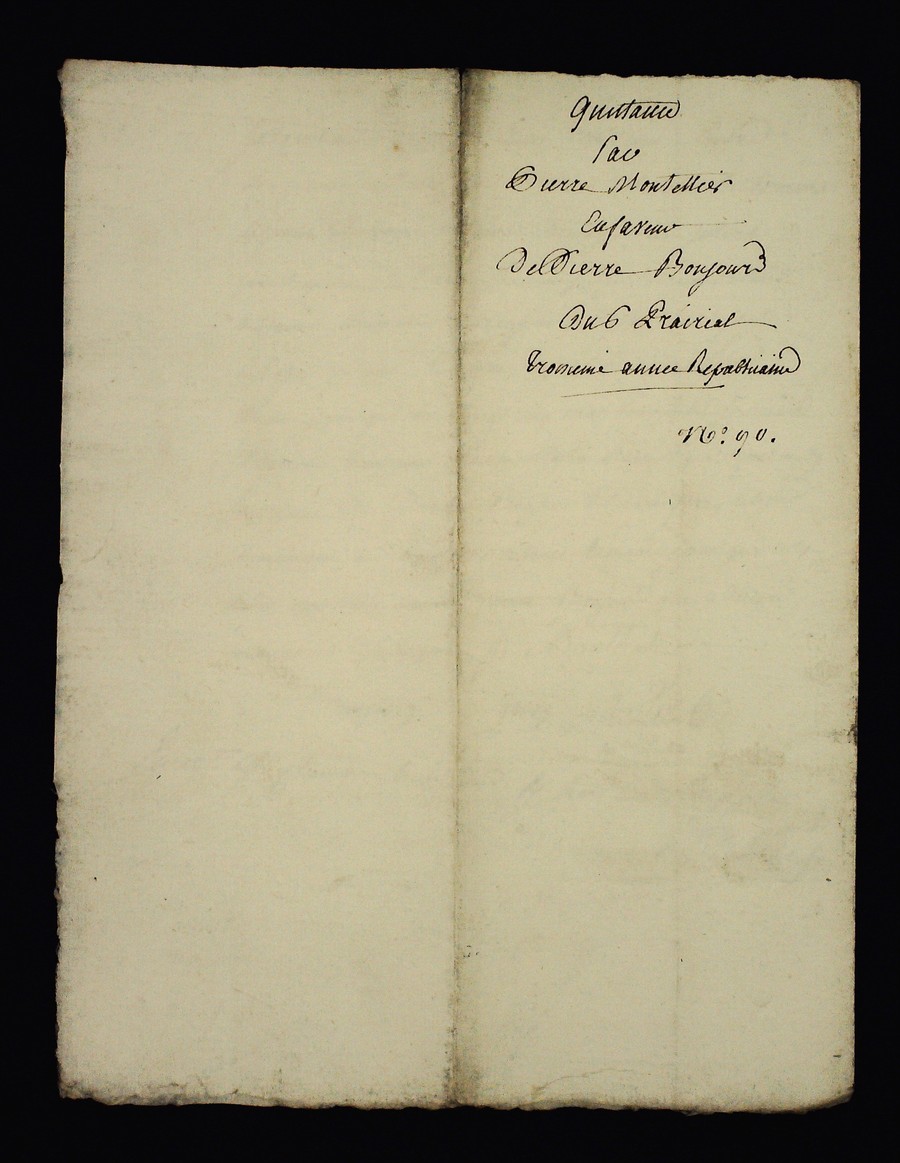 Quittance
Par
Pierre Montellier
En faveur
De Pierre Bonjour
Du 6 Prairial
troisieme année Republicaine
N.º 90.